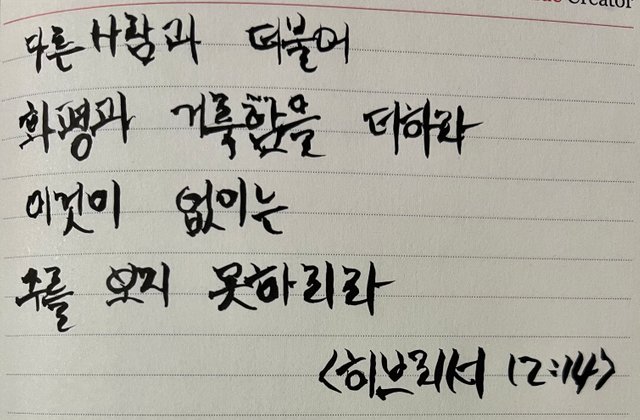 Creator
다른 사람과 더불어
화평과 거룩함을 더하라
이것이 없이는
주를 보지 못하리라
<히브리서 12:14>